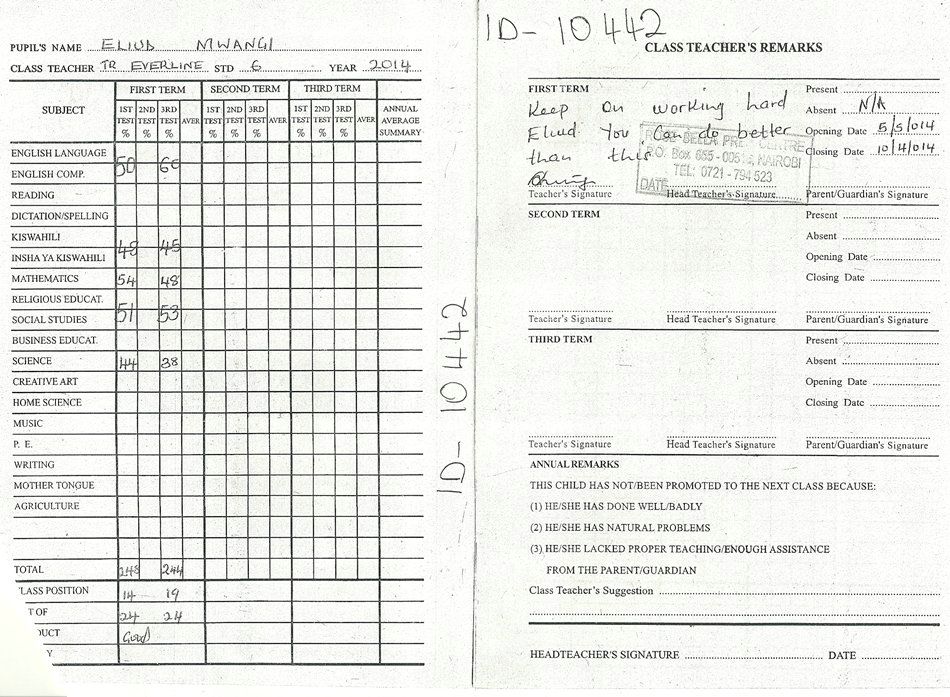 PUPIL'S NAME ELIUD MWANGI
CLASS TEACHER TR EVERLINE STD 6 YEAR 2014
SUBJECT FIRST TERM SECOND TERM THIRD TERM
1ST TEST % 2ND TEST % 3RD TEST % AVER 1ST TEST % 2ND TEST % 3RD TEST % AVER 1ST TEST % 2ND TEST % 3RD TEST % AVER ANNUAL AVERAGE SUMMARY
ENGLISH LANGUAGE
50 60
ENGLISH COMP.
READING
DICTATION/SPELLING
KISWAHILI
48 45
INSHA YA KISWAHILI
MATHEMATICS 54 48
RELIGIOUS EDUCAT.
51 53
SOCIAL STUDIES
BUSINESS EDUCAT.
SCIENCE 44 38
CREATIVE ART
HOME SCIENCE
MUSIC
P. E.
WRITING
MOTHER TONGUE
AGRICULTURE
TOTAL 248 244
LASS POSITION 14 19
T OF 24 24
DUCT Good
Y
ID- 10442
ID- 10442
CLASS TEACHER'S REMARKS
FIRST TERM
Keep on working hard
Eliud. You can do better
than this
Teacher's Signature Head Teacher's Signature Parent/Guardian's Signature
P.O. Box 655 - NAIROBI
TEL: 0721 - 794 523
DATE
Present
Absent N/A
Opening Date 5/5/014
Closing Date 10/4/014
SECOND TERM
Present
Absent
Opening Date
Closing Date
Teacher's Signature Head Teacher's Signature Parent/Guardian's Signature
THIRD TERM
Present
Absent
Opening Date
Closing Date
Teacher's Signature Head Teacher's Signature Parent/Guardian's Signature
ANNUAL REMARKS
THIS CHILD HAS NOT/BEEN PROMOTED TO THE NEXT CLASS BECAUSE:
(1) HE/SHE HAS DONE WELL/BADLY
(2) HE/SHE HAS NATURAL PROBLEMS
(3) HE/SHE LACKED PROPER TEACHING/ENOUGH ASSISTANCE
FROM THE PARENT/GUARDIAN
Class Teacher's Suggestion
HEADTEACHER'S SIGNATURE DATE